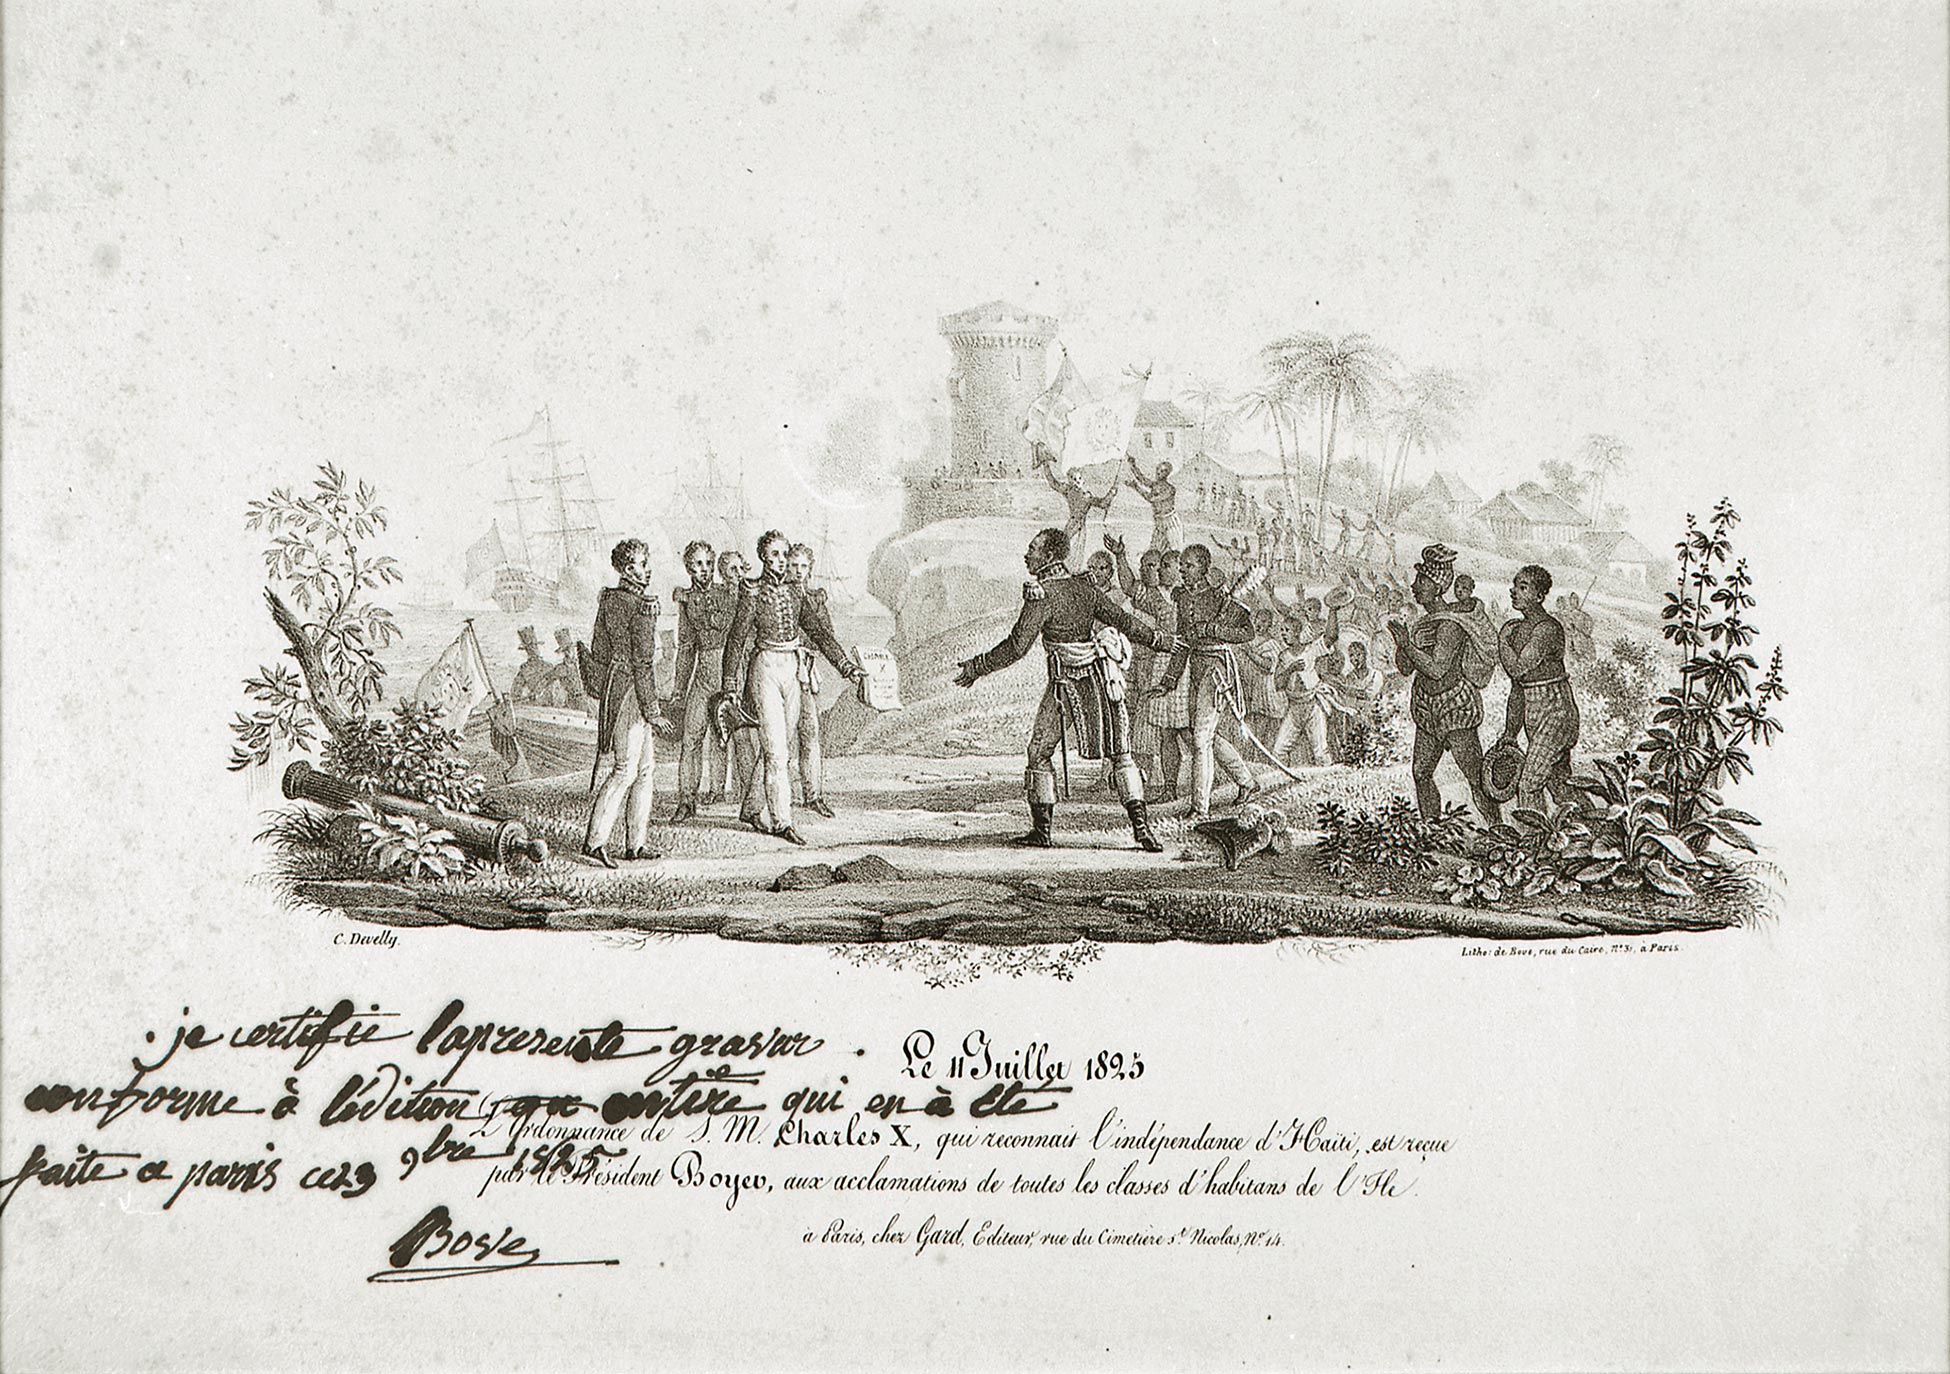 CHARLES
X
C. Develly.
Litho: de Bove, rue du Caire, N.º 3, à Paris.
je certifie lapresente gravur
conforme à l'édition entiere qui en à été
faite a paris ce 9bre 1825
Bove
Le 11 Juillet 1825
L'Ordonnance de S. M. Charles X, qui reconnait l'indépendance d'Haïti, est reçue
par le Président Boyer, aux acclamations de toutes les classes d'habitans de l'Ile.
à Paris, chez Gard, Editeur, rue du Cimetière S.t Nicolas, N.º 14.